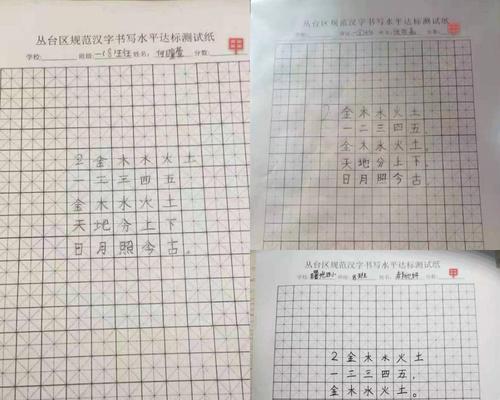 丛台区规范汉字书写水平达标测试纸
学校: 班级: 姓名: 分数:
甲
2 金 木 水 火 土
一 二 三 四 五
金 木 水 火 土
天 地 分 上 下
日 月 照 今 古 。
丛台区规范汉字书写水平达标测试纸
姓名: 分数:
甲
2 金 木 水 火 土
一 二 三 四 五 ,
金 木 水 火 土 。
天 地 分 上 下 ,
日 月 照 今 古 。
丛台区规范汉字书写水平达标测试纸
学校: 班级: 8班 姓名: 分数:
甲
2 金 木 水 火 土
一 二 三 四 五 ,
金 木 水 火 土 。